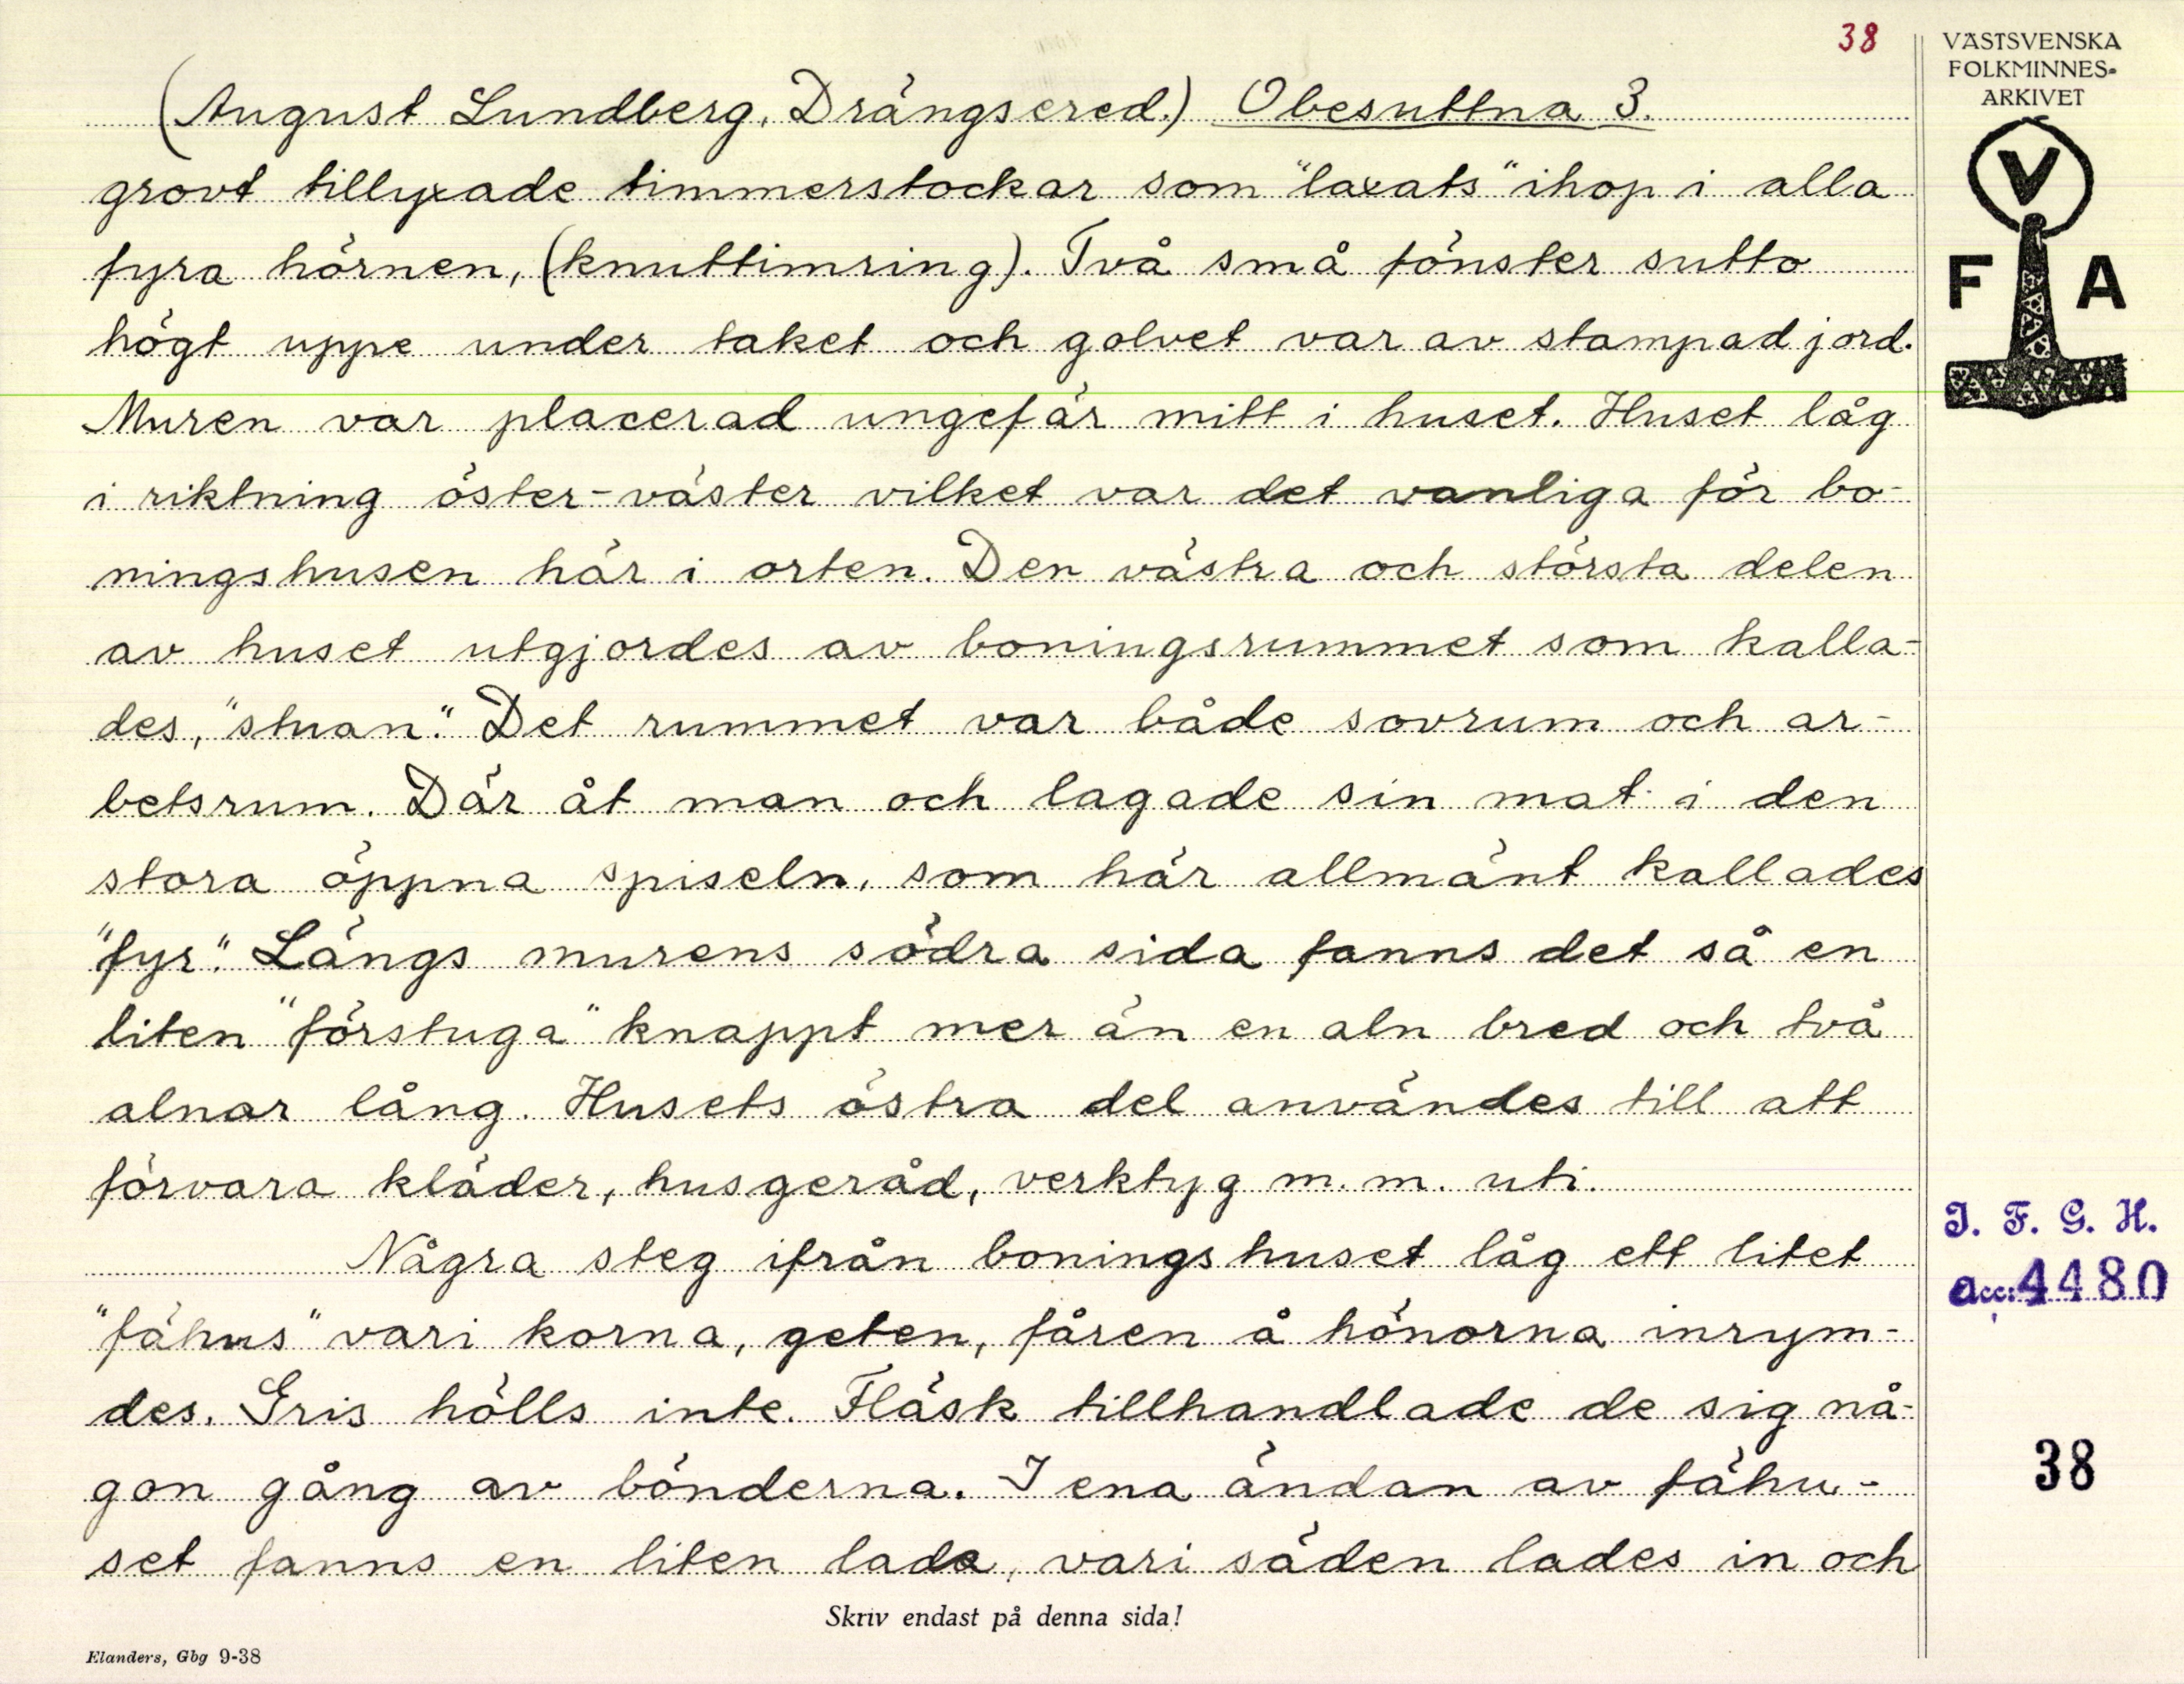 38
(August Lundberg, Drängsered.) Obesuttna 3.
grovt tillyxade timmerstockar som "laxats" ihop i alla
fyra hörnen, (knuttimring). Två små fönster sutto
högt uppe under taket och golvet var av stampad jord.
Muren var placerad ungefär mitt i huset. Huset låg
i riktning öster-väster vilket var det vanliga för bo-
ningshusen här i orten. Den västra och största delen
av huset utgjordes av boningsrummet som kalla-
des, "stuan". Det rummet var både sovrum och ar-
betsrum. Där åt man och lagade sin mat i den
stora öppna spiseln, som här allmänt kallades
"fyr". Längs murens södra sida fanns det så en
liten "förstuga" knappt mer än en aln bred och två
alnar lång. Husets östra del användes till att
förvara kläder, husgeråd, verktyg m.m. uti.
Några steg ifrån boningshuset låg ett litet
"fähus" vari korna, geten, fåren å hönorna inrym-
des. Gris hölls inte. Fläsk tillhandlade de sig nå-
gon gång av bönderna. I ena ändan av fähu-
set fanns en liten lada, vari säden lades in och
Skriv endast på denna sida!
Elanders, Gbg 9-38
VÄSTSVENSKA
FOLKMINNES-
ARKIVET
V
F A
I. F. G. H.
Acc: 4480
38